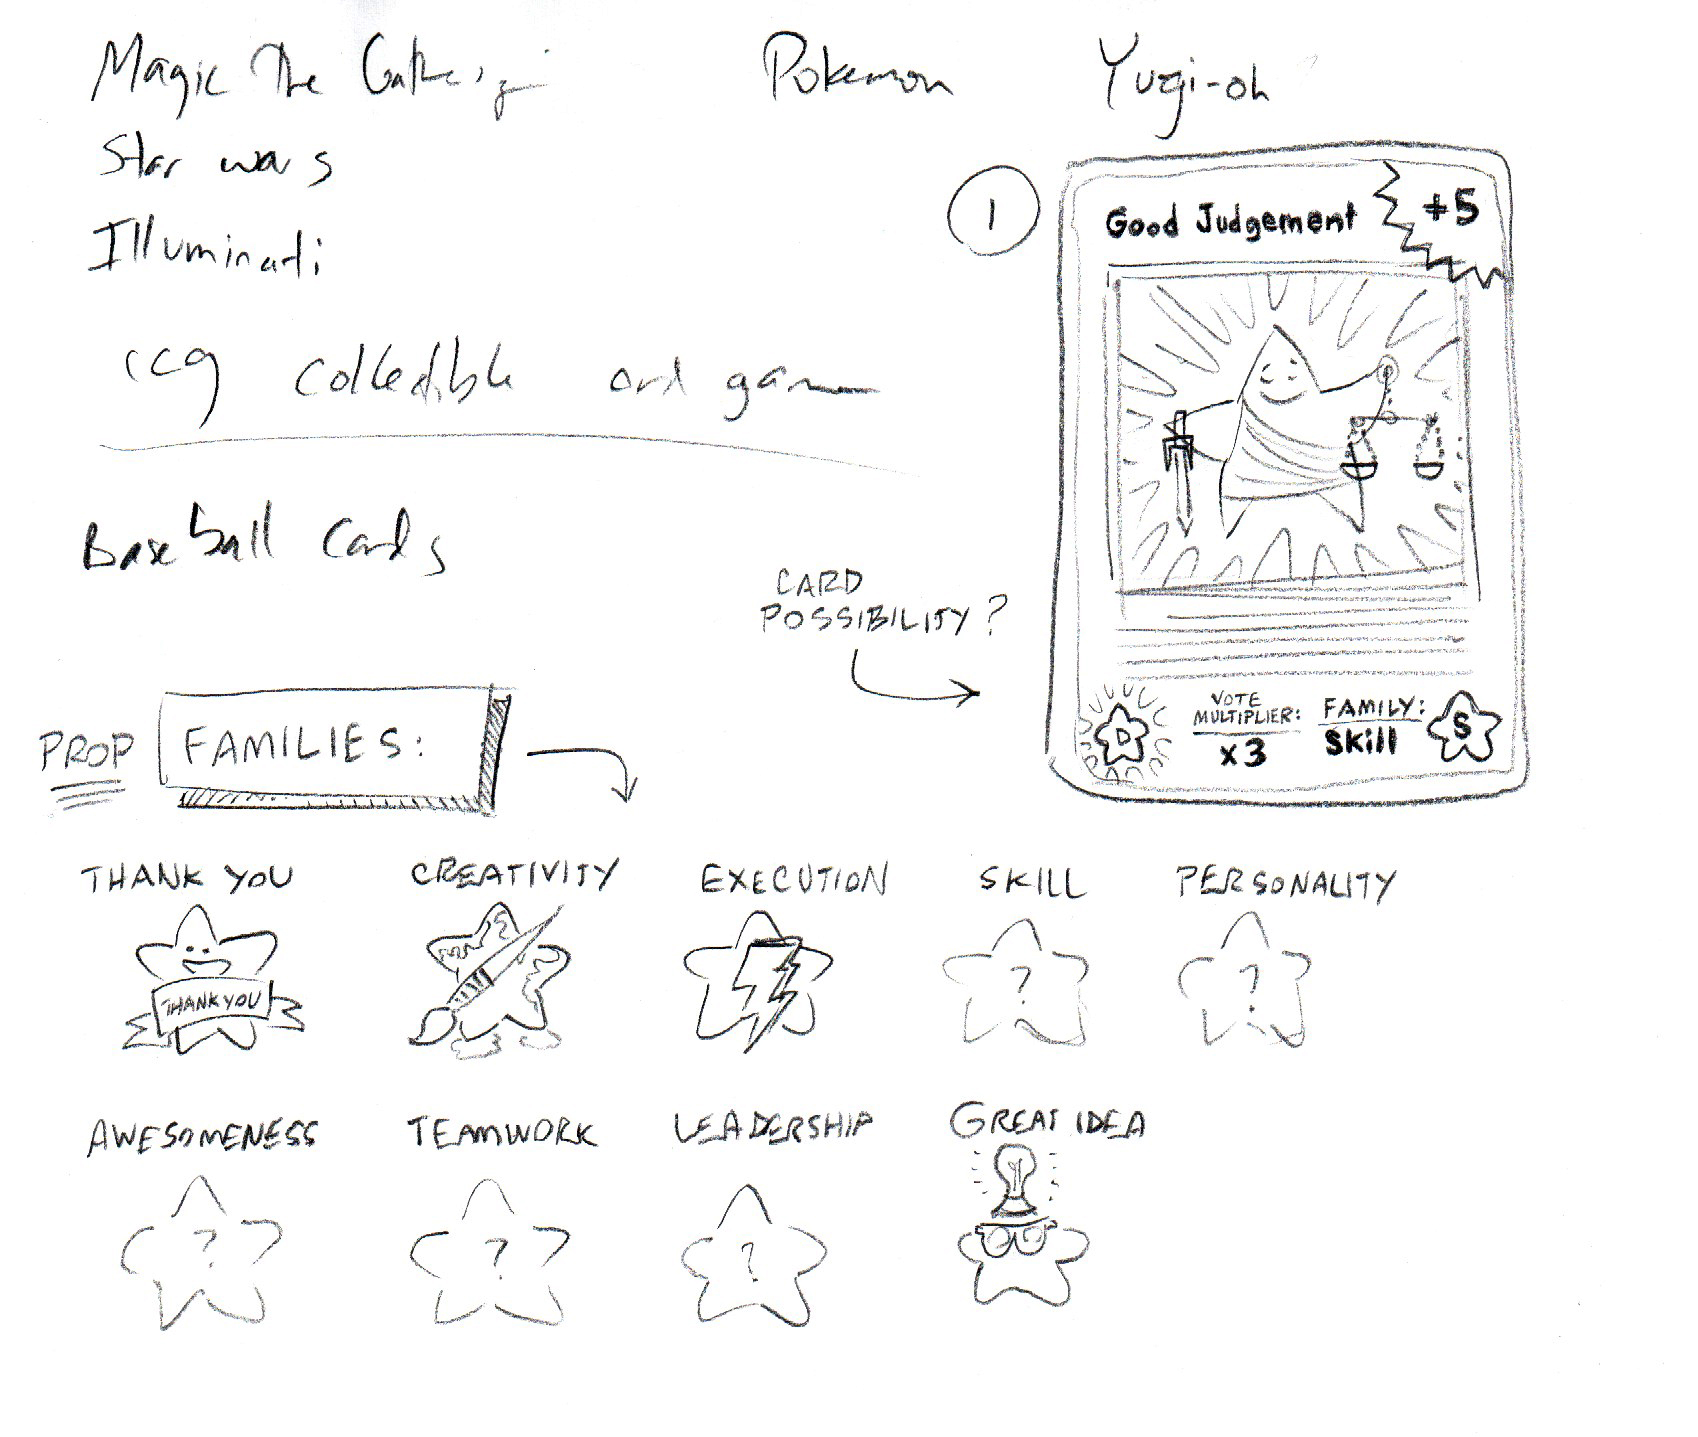 Magic The Gathering
Pokemon
Yugi-oh
Star wars
Illuminati
ccg collectible card game
Baseball Cards
1
Good Judgement
+5
CARD
POSSIBILITY?
D
VOTE
MULTIPLIER:
x3
FAMILY:
Skill
S
PROP FAMILIES:
THANK YOU
CREATIVITY
EXECUTION
SKILL
PERSONALITY
THANK YOU
?
?
AWESOMENESS
TEAMWORK
LEADERSHIP
GREAT IDEA
?
?
?